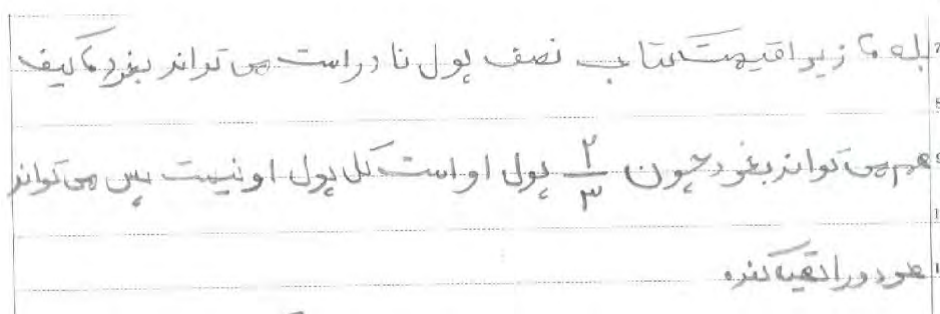 بله، زیرا قیمت کتاب نصف پول نادر است می تواند بخرد، کیف
هم می تواند بخرد چون ۲/۳ پول او است کل پول او نیست پس می تواند
هر دو را تهیه کند.